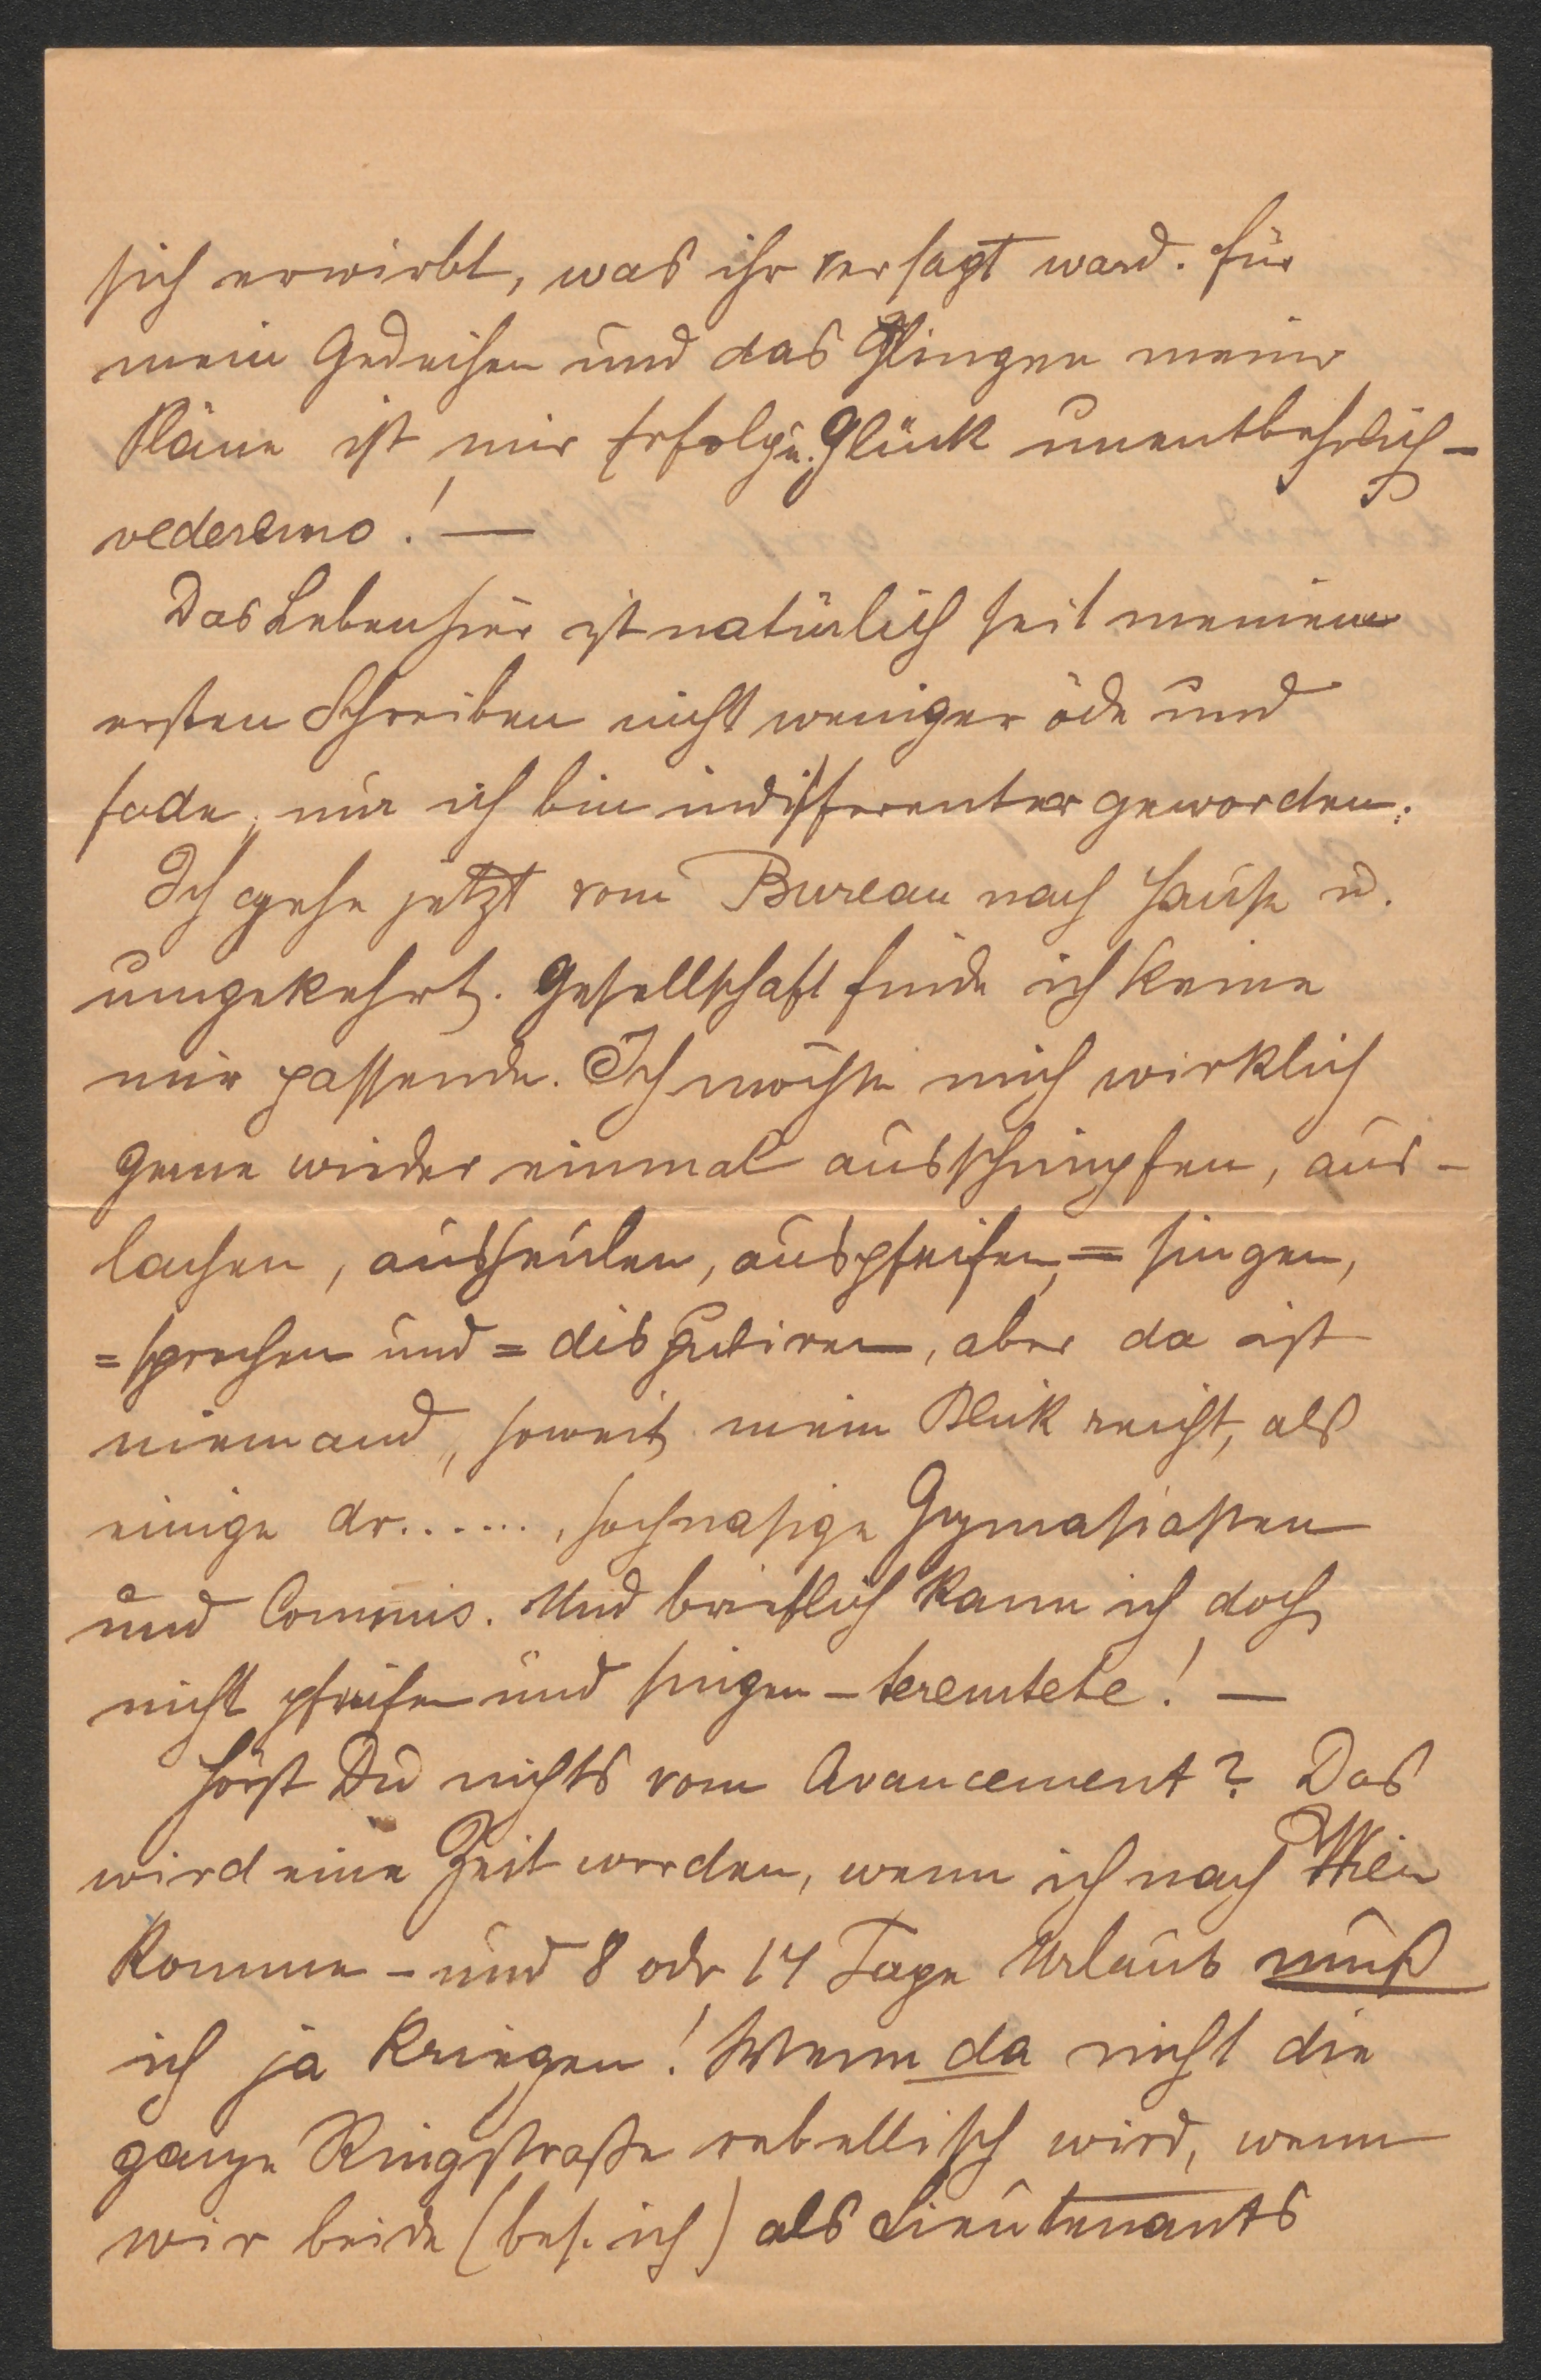 sich erwirbt, was ihr versagt ward. Für
mein Gedeihen und das Glingen meiner
Pläne ist mir Erfolg u. Glück unentbehrlich –
vederemo! —
Das Leben hier ist natürlich seit meinem
ersten Schreiben nicht weniger öde und
fade, nur ich bin indifferenter geworden.
Ich gehe jetzt vom Bureau nach Hause u.
umgekehrt. Gesellschaft finde ich keine
mir passende. Ich möchte mich wirklich
gerne wieder einmal ausschimpfen, aus-
lachen, ausheulen, auspfeifen, =singen,
=sprechen und =disputiren, aber da ist
niemand, soweit mein Blick reicht, als
einige dr......, hochnasige Gymasiasten
und Commis. Und brieflich kann ich doch
nicht pfeifen und singen – teremtete! —
Hörst Du nichts vom Avancement? Das
wird eine Zeit werden, wenn ich nach Wien
komme – und 8 oder 14 Tage Urlaub muß
ich ja kriegen! Wenn da nicht die
ganze Ringstraße rebellisch wird, wenn
wir beide (bes. ich) als Lieutenants